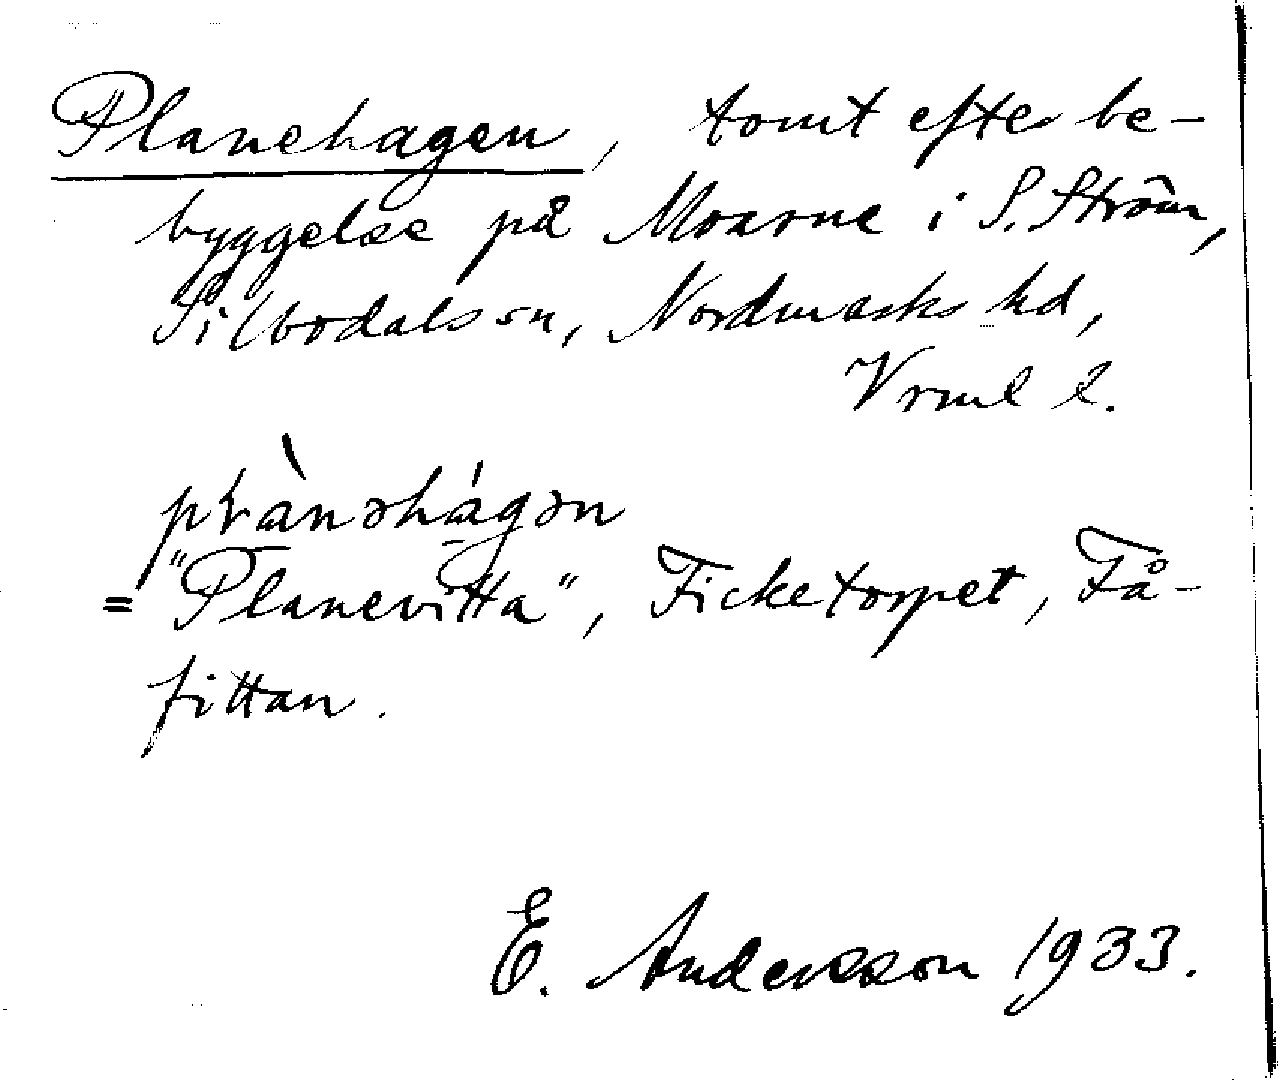 Planehagen, tomt efter be-
byggelse på Moarne i S. Ström,
Silbodals sn, Nordmarks hd,
Vrml l.
pɽànəhágən
= "Planevitta", Ficketorpet, Få-
fittan.
E. Andersson 1933.